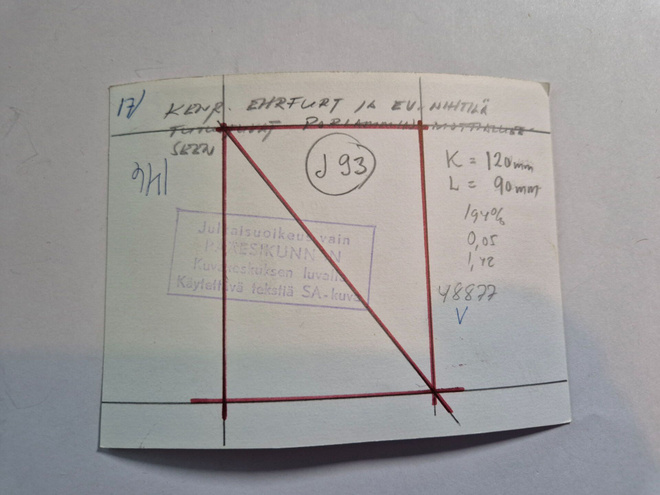 17) KENR. EHRFURT JA EV. NIHTILÄ
SEEN
J 93
K = 120mm
L = 90mm
194%
0,05
1,42
48877
V
Julkaisuoikeus vain
Kuvakeskuksen luvalla
Käytettävä tekstiä SA-kuva